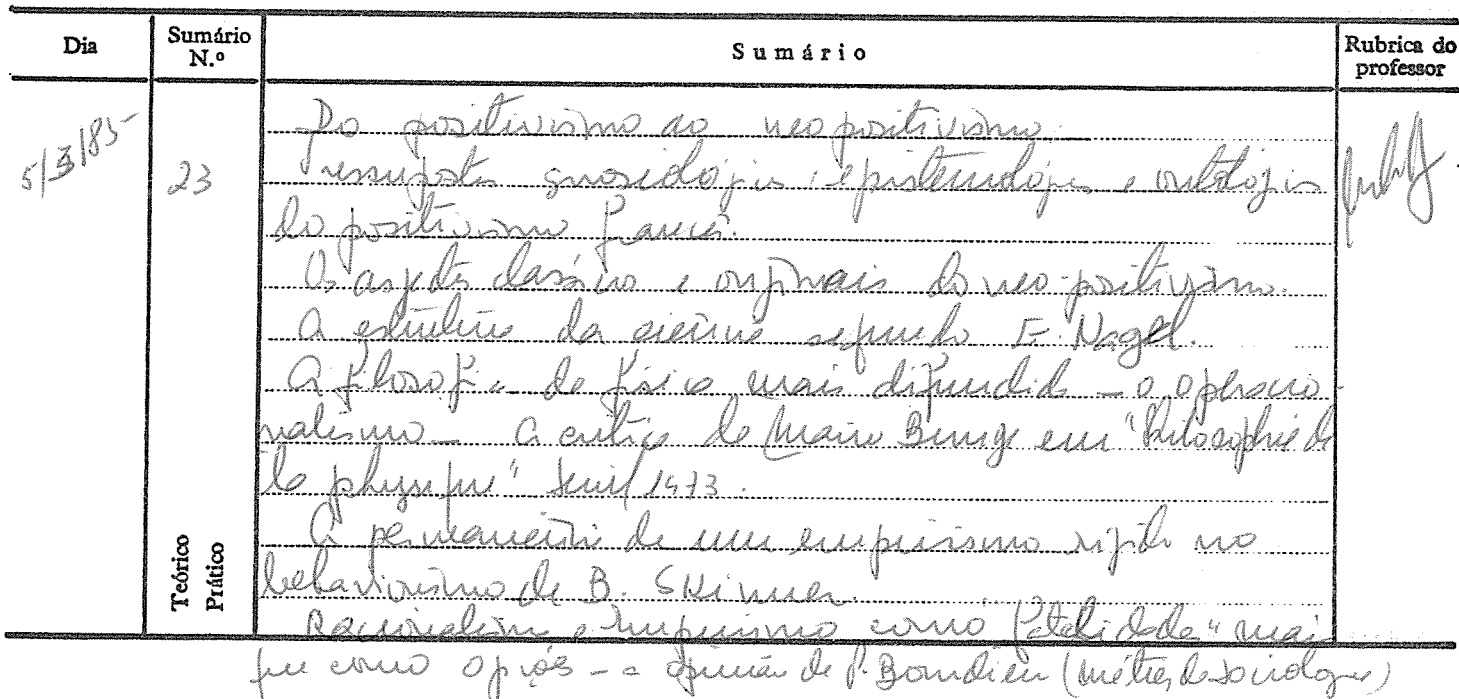 Dia
Sumário N.º
Sumário
Rubrica do professor
5/3/85
23
Do positivismo ao neopositivismo.
Pressupostos gnosiológicos, epistemológicos e ontológicos
do positivismo francês.
Os aspectos clássicos e originais do neo-positivismo.
A estrutura da ciência segundo E. Nagel.
A filosofia da física mais difundida - o operacio-
nalismo - A crítica de Mario Bunge em "Philosophie de
la physique" Seuil 1973.
A permanência de um empirismo rígido no
behaviorismo de B. Skinner.
Racionalismo e empirismo como mais
que como opções - a opinião de P. Bourdieu (Métier de sociologue)
Teórico
Prático